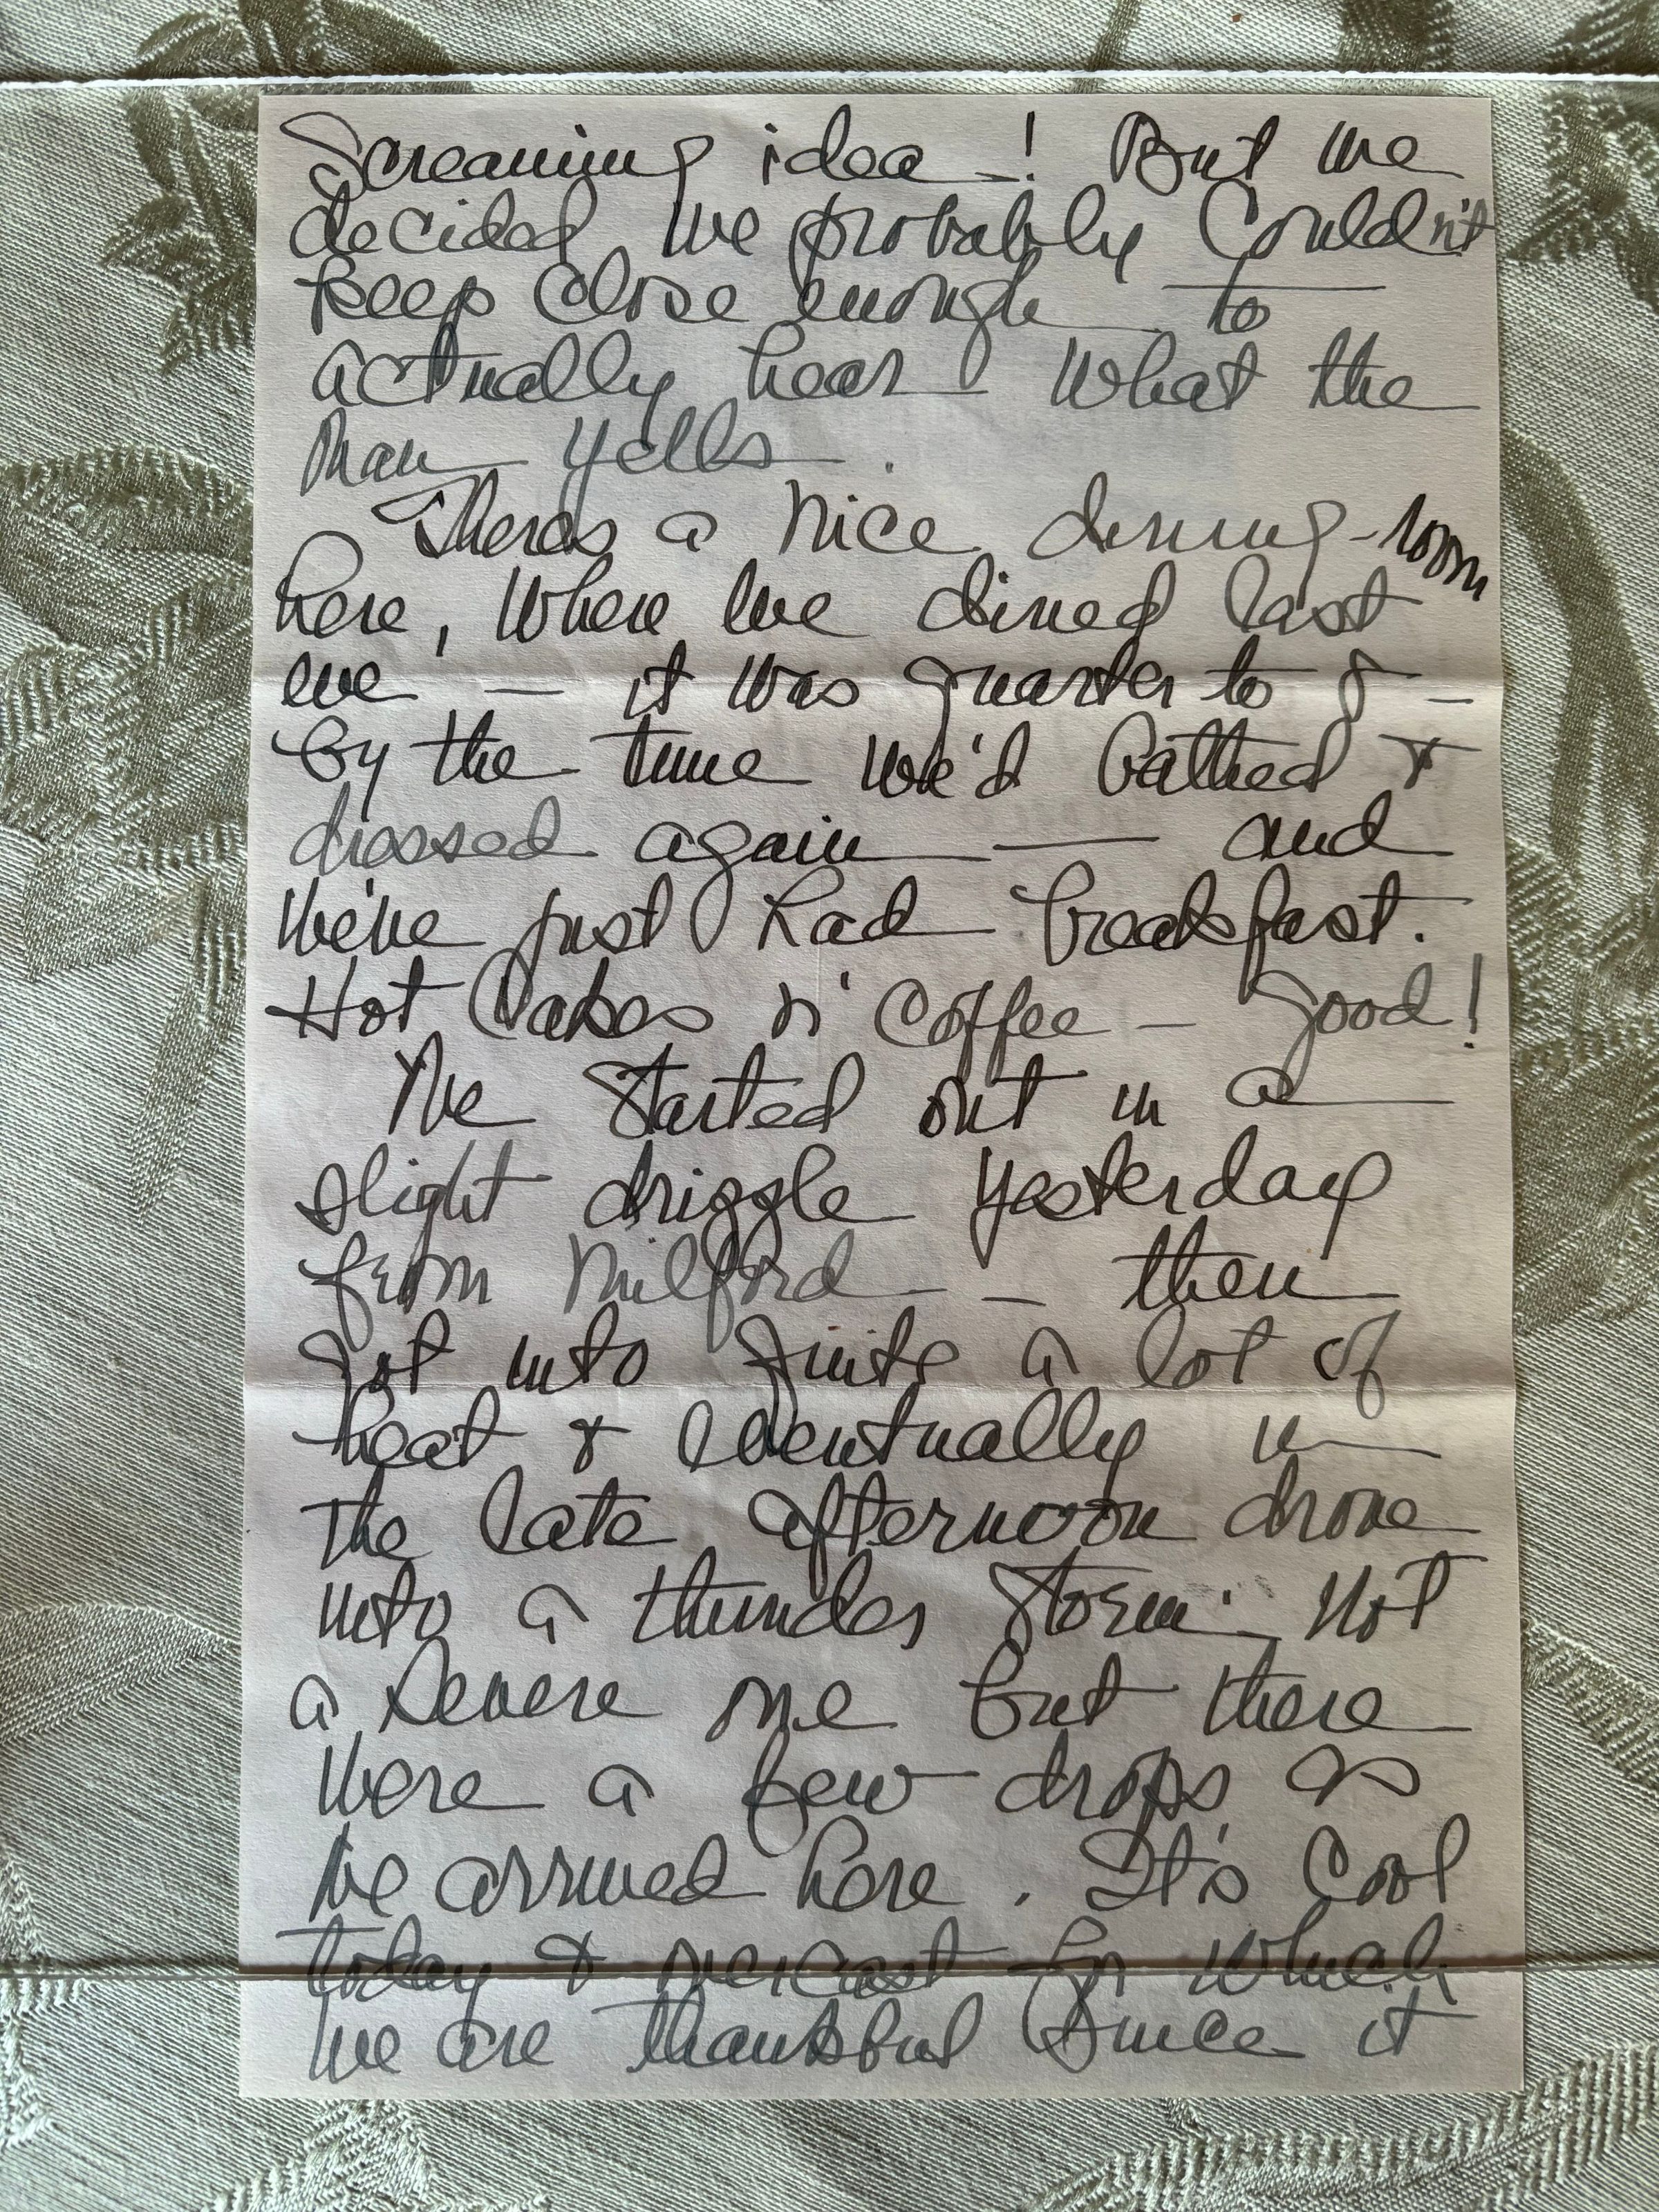 Screaming idea –! But we
decided we probably Couldn't
keep close enough — to
actually hear what the
man yells.
Theres a nice dining-room
here, where we dined last
eve — it was quarter to 8 –
by the time we'd bathed &
dressed again — and
we've just had breakfast.
Hot Cakes n' Coffee — good!
We started out in a
slight drizzle yesterday
from Milford — then
got into quite a lot of
heat & eventually in
the late afternoon drove
into a thunder storm. Not
a severe one but there
were a few drops as
we arrived here. It's Cool
today & overcast for which
we are thankful since it